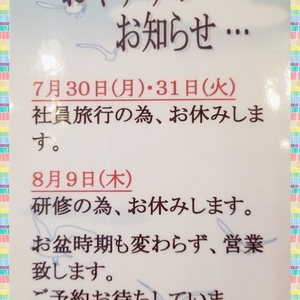 お知らせ…
7月30日(月)・31日(火)
社員旅行の為、お休みしま
す。
8月9日(木)
研修の為、お休みします。
お盆時期も変わらず、営業
致します。
ご予約お待ちしていま